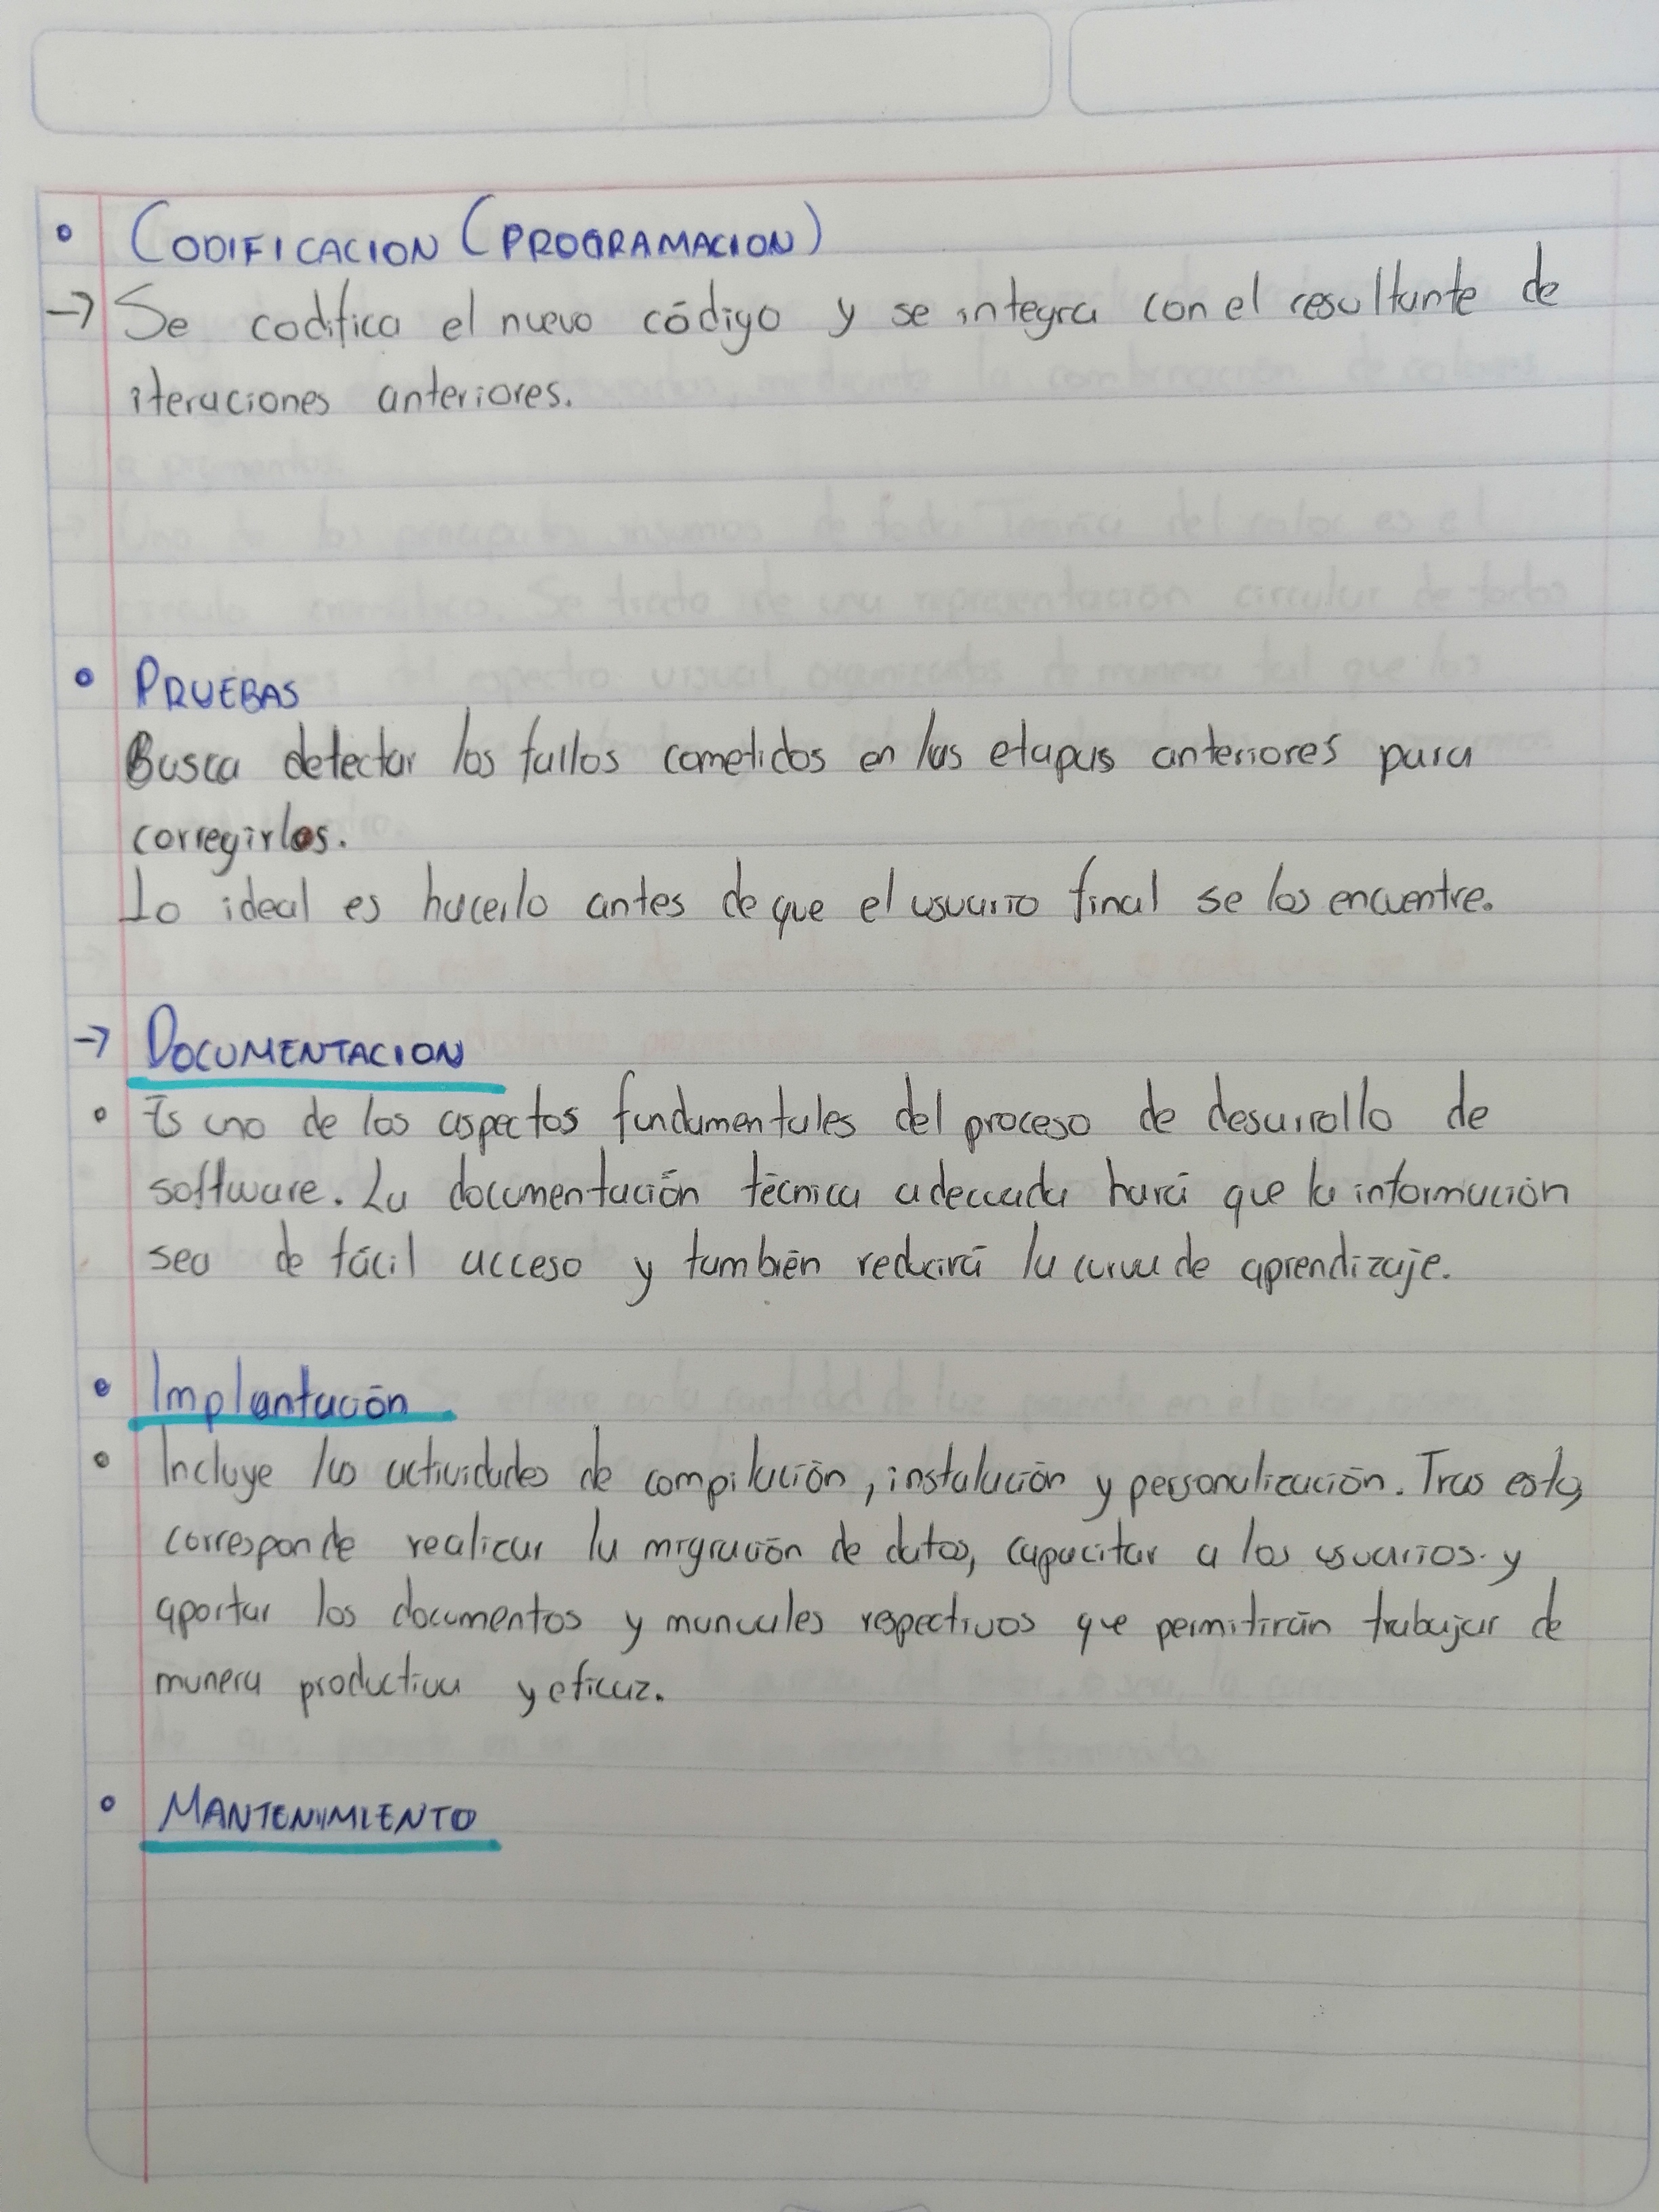 • CODIFICACION (PROGRAMACION)
→ Se codifica el nuevo código y se integra con el resultante de
iteraciones anteriores.
• PRUEBAS
Busca detectar los fallos cometidos en las etapas anteriores para
corregirlos.
Lo ideal es hacerlo antes de que el usuario final se los encuentre.
→ DOCUMENTACION
• Es uno de los aspectos fundamentales del proceso de desarrollo de
software. La documentación técnica adecuada hará que la información
sea de fácil acceso y también reducirá la curva de aprendizaje.
• Implantación
• Incluye las actividades de compilación, instalación y personalización. Tras esto,
corresponde realizar la migración de datos, capacitar a los usuarios y
aportar los documentos y manuales respectivos que permitirán trabajar de
manera productiva y eficaz.
• MANTENIMIENTO